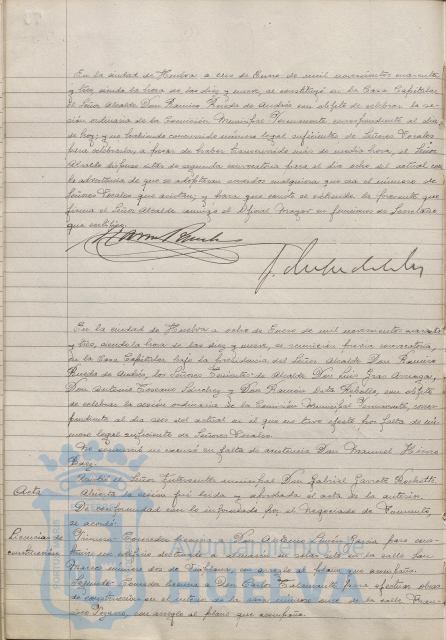 En la ciudad de Huelva a seis de Enero de mil novecientos cuarenta
y tres, siendo la hora de las diez y nueve, se constituyó en la Casa Capitular
el Señor Alcalde Don Ramiro Rueda de Andrés con objeto de celebrar la se-
sión ordinaria de la Comisión Municipal Permanente correspondiente al día
de hoy; y no habiendo concurrido número legal suficiente de Señores Vocales
para celebrarla, a pesar de haber transcurrido más de media hora, el Señor
Alcalde dispuso citar de segunda convocatoria para el día ocho del actual con
la advertencia de que se adoptarán acuerdos cualquiera que sea el número de
Señores Vocales que asistan; y para que conste se extiende la presente que
firma el Señor Alcalde conmigo el Oficial Mayor en funciones de Secretario
que certifico.
En la ciudad de Huelva a ocho de Enero de mil novecientos cuarenta
y tres, siendo la hora de las diez y nueve, se reunieron previa convocatoria,
en la Casa Capitular bajo la presidencia del Señor Alcalde Don Ramiro
Rueda de Andrés, los Señores Tenientes de Alcalde Don Luis
Don Antonio Toscano Sánchez y Don Ramón con objeto
de celebrar la sesión ordinaria de la Comisión Municipal Permanente, corres-
pondiente al día seis del actual en el que no tuvo efecto por falta de nú-
mero legal suficiente de Señores Vocales.
No concurrió ni excusó su falta de asistencia Don Manuel
Asistió el Señor Interventor municipal Don Gabriel Garrote
Acta Abierta la sesión fué leída y aprobada el acta de la anterior.
De conformidad con lo informado por el Negociado de Fomento,
se acordó:
Licencia de Primero: Conceder licencia a Don Antonio García para cons-
construcción truir un edificio destinado a en un solar en la calle San
Marcos número dos de con arreglo al plano que acompaña.
Segundo: Conceder licencia a Don Carlos para efectuar obras
de construcción en el interior de la casa número once de la calle
con arreglo al plano que acompaña.
Ayuntamiento de